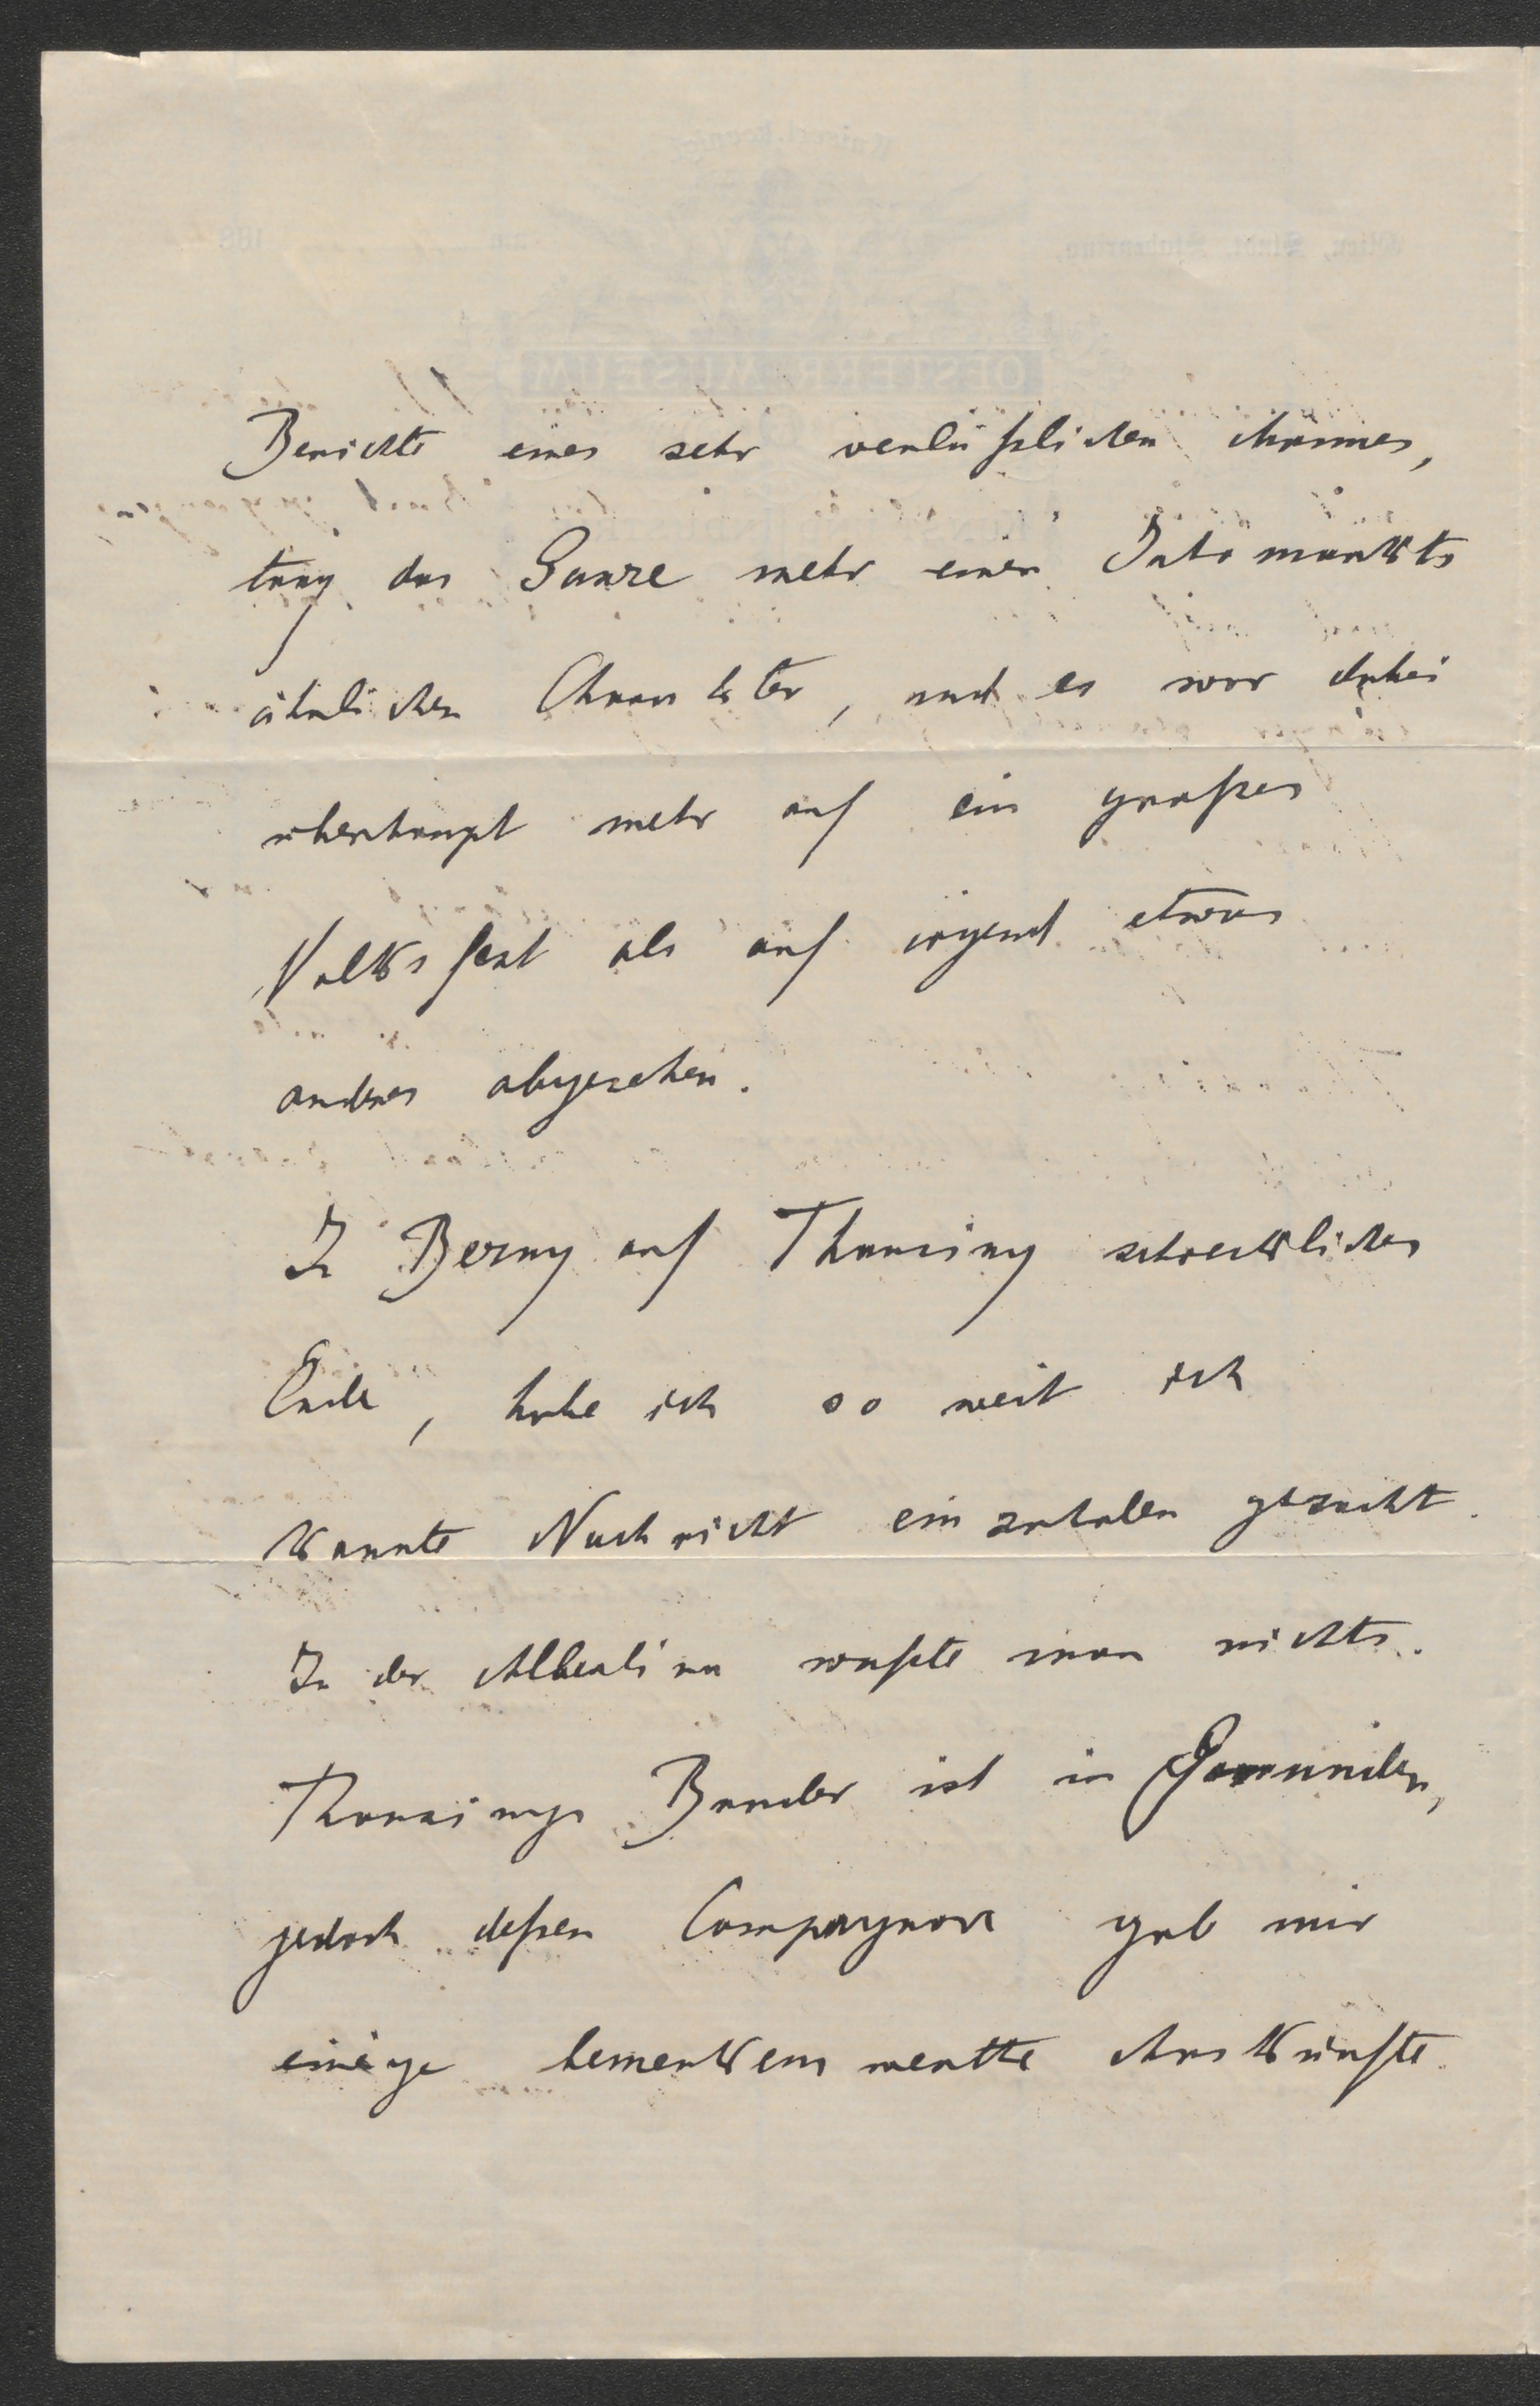 Berichte eines sehr verläßlichen Mannes,
trug das Ganze mehr einen Jahrmarkts
ähnlichen Charakter, und es war dabei
überhaupt mehr auf ein großes
Volksfest als auf irgend etwas
anderes abgesehen.
In Bezug auf Thausing schreckliches
Ende, habe ich so weit ich
konnte Nachricht einzuholen gesucht.
In der Albertina wußte man nichts.
Thausings Bruder ist in Gmunden,
jedoch deßen Compagnon gab mir
einige bemerkenswerthe Auskünfte.
OESTERR. MUSEUM